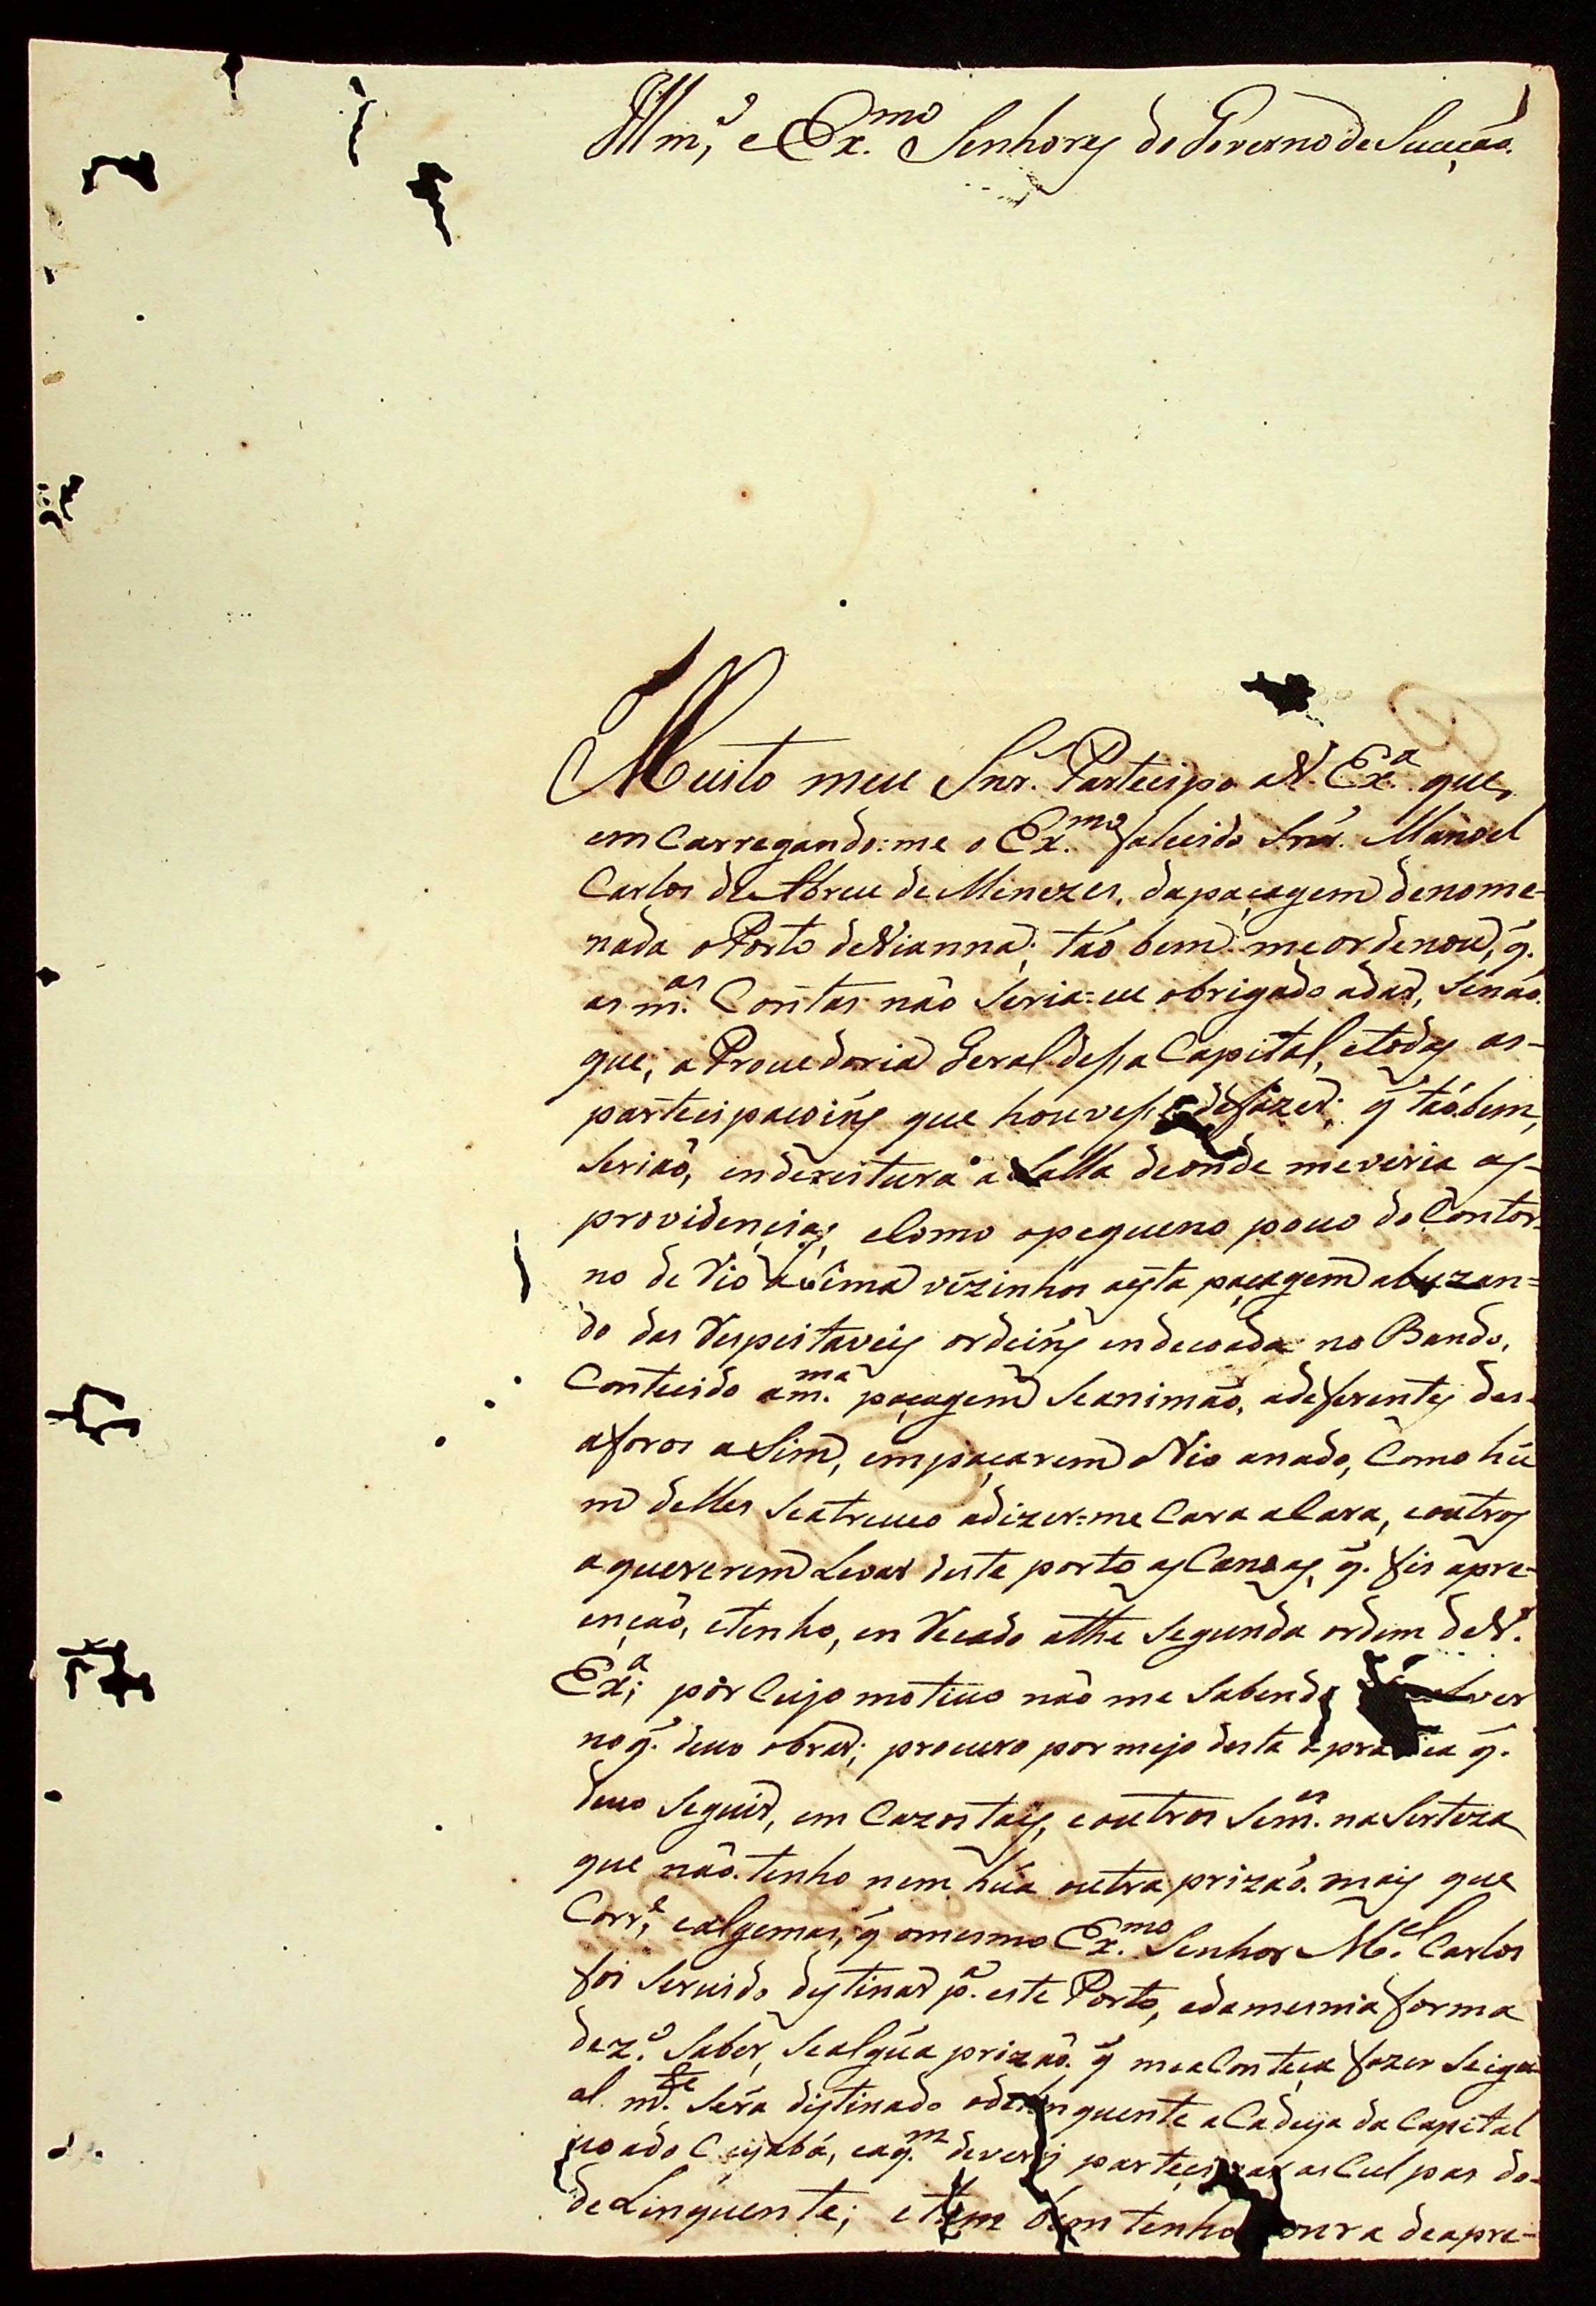 Illm.º e Ex.mo Senhorez do Governo de Sucção.
Muito meu Snr. Partecipo a V. Ex.ª que,
em Carregando:me o Ex.mo falecido Snr. Manoel
Carlos de Abreu de Minezes, da paçagem denome-
nada o Porto de Vianna; tão bem me ordenou, q.
as m.as Contas não seria=eu obrigado a dar, senão
que, a Provedoria Geral desta Capital, e todas as-
partecipacoins que houvesse de fazer, q̃ tãobem,
serião, enderestura a Salla de onde me veria as-
providençias, e Como o pequeno povo do Contor-
no de Rio aSima vizinhos a esta paçagem abuzan=
do das Respeitaveis ordeins endecada no Bando,
Contecido a m.ma paçagem se animão, a deferentes des-
aforos aSim, em paçarem o Rio a nado, Como hũ
m delles se atreveo a dizer=me Cara a Cara, e outros
a quererem Levar deste porto as Canoas, q. fis apre-
enção, e tenho, en Recado athe segunda ordem de V.
Ex.ª; por Cujo motivo não me sabendo
no q. devo obrar; procuro por mejo desta a pratica q.
devo seguir, em Cazos tais, e outros sem.es na Serteza
que não tenho nem húa outra prizão mais que
Corr.e e algemas, q̃ o mesmo Ex.mo Senhor M.el Carlos
foi servido destinar p.ª este Porto, e da mesma forma
dez.º saber, se algúa prizão q̃ me aConteça fazer se igu-
al m.te será distinado o delinquente a Cadeya da Capital
ou a do Cuyabá, e a q.m deverej partecipar as Culpas do-
deLinquente; e tem bem tenho honra de apre-